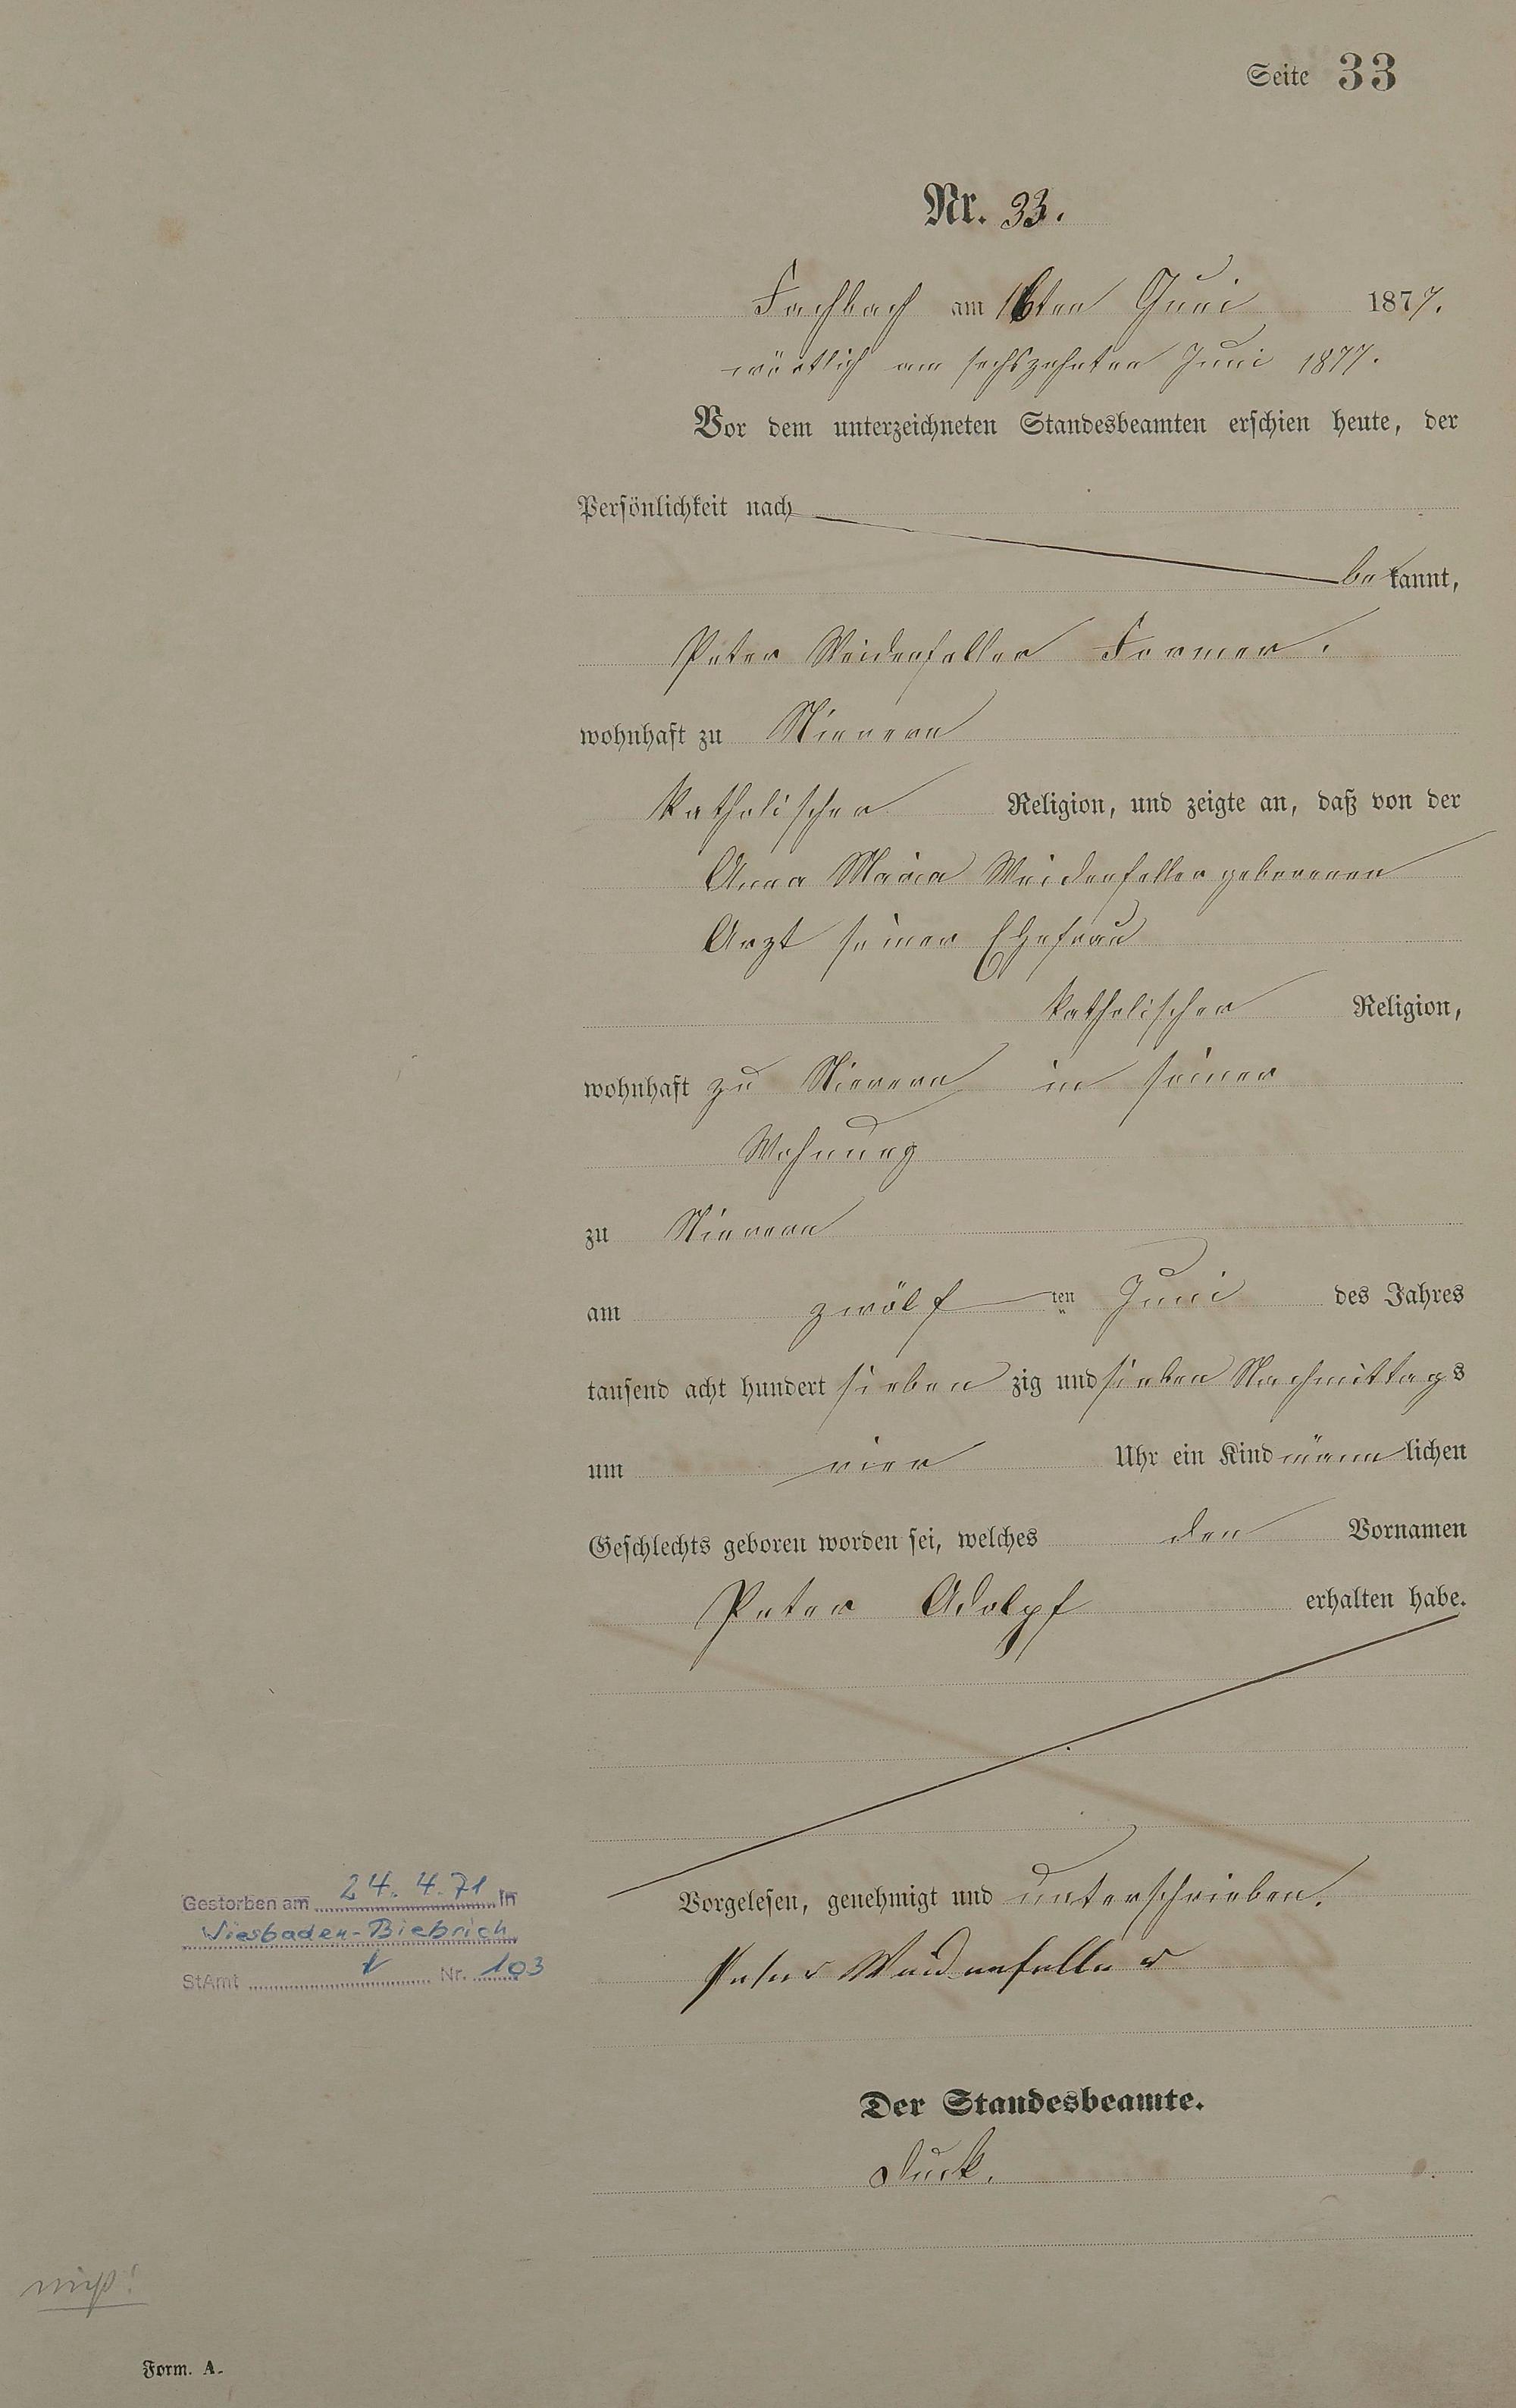 Seite 33
Nr. 33.
Fachbach am 16ten Juni 1877.
wörtlich am sechszehnten Juni 1877.
Vor dem unterzeichneten Standesbeamten erschien heute, der
Persönlichkeit nach
bekannt,
Peter Weidenfeller Former.
wohnhaft zu Nievern
katholischer Religion, und zeigte an, daß von der
Anna Maria Weidenfeller geborenen
Arzt seiner Ehefrau
katholischer Religion,
wohnhaft zu Nievern in seiner
Wohnung
zu Nievern
am zwölften Juni des Jahres
tausend acht hundert siebenzig und sieben Nachmittags
um vier Uhr ein Kind männlichen
Geschlechts geboren worden sei, welches den Vornamen
Peter Adolpf erhalten habe.
Vorgelesen, genehmigt und unterschrieben.
Peter Weidenfeller
Gestorben am 24. 4. 71 in
Wiesbaden-Biebrich
StAmt Nr. 103
Der Standesbeamte.
Duck.
Form. A.